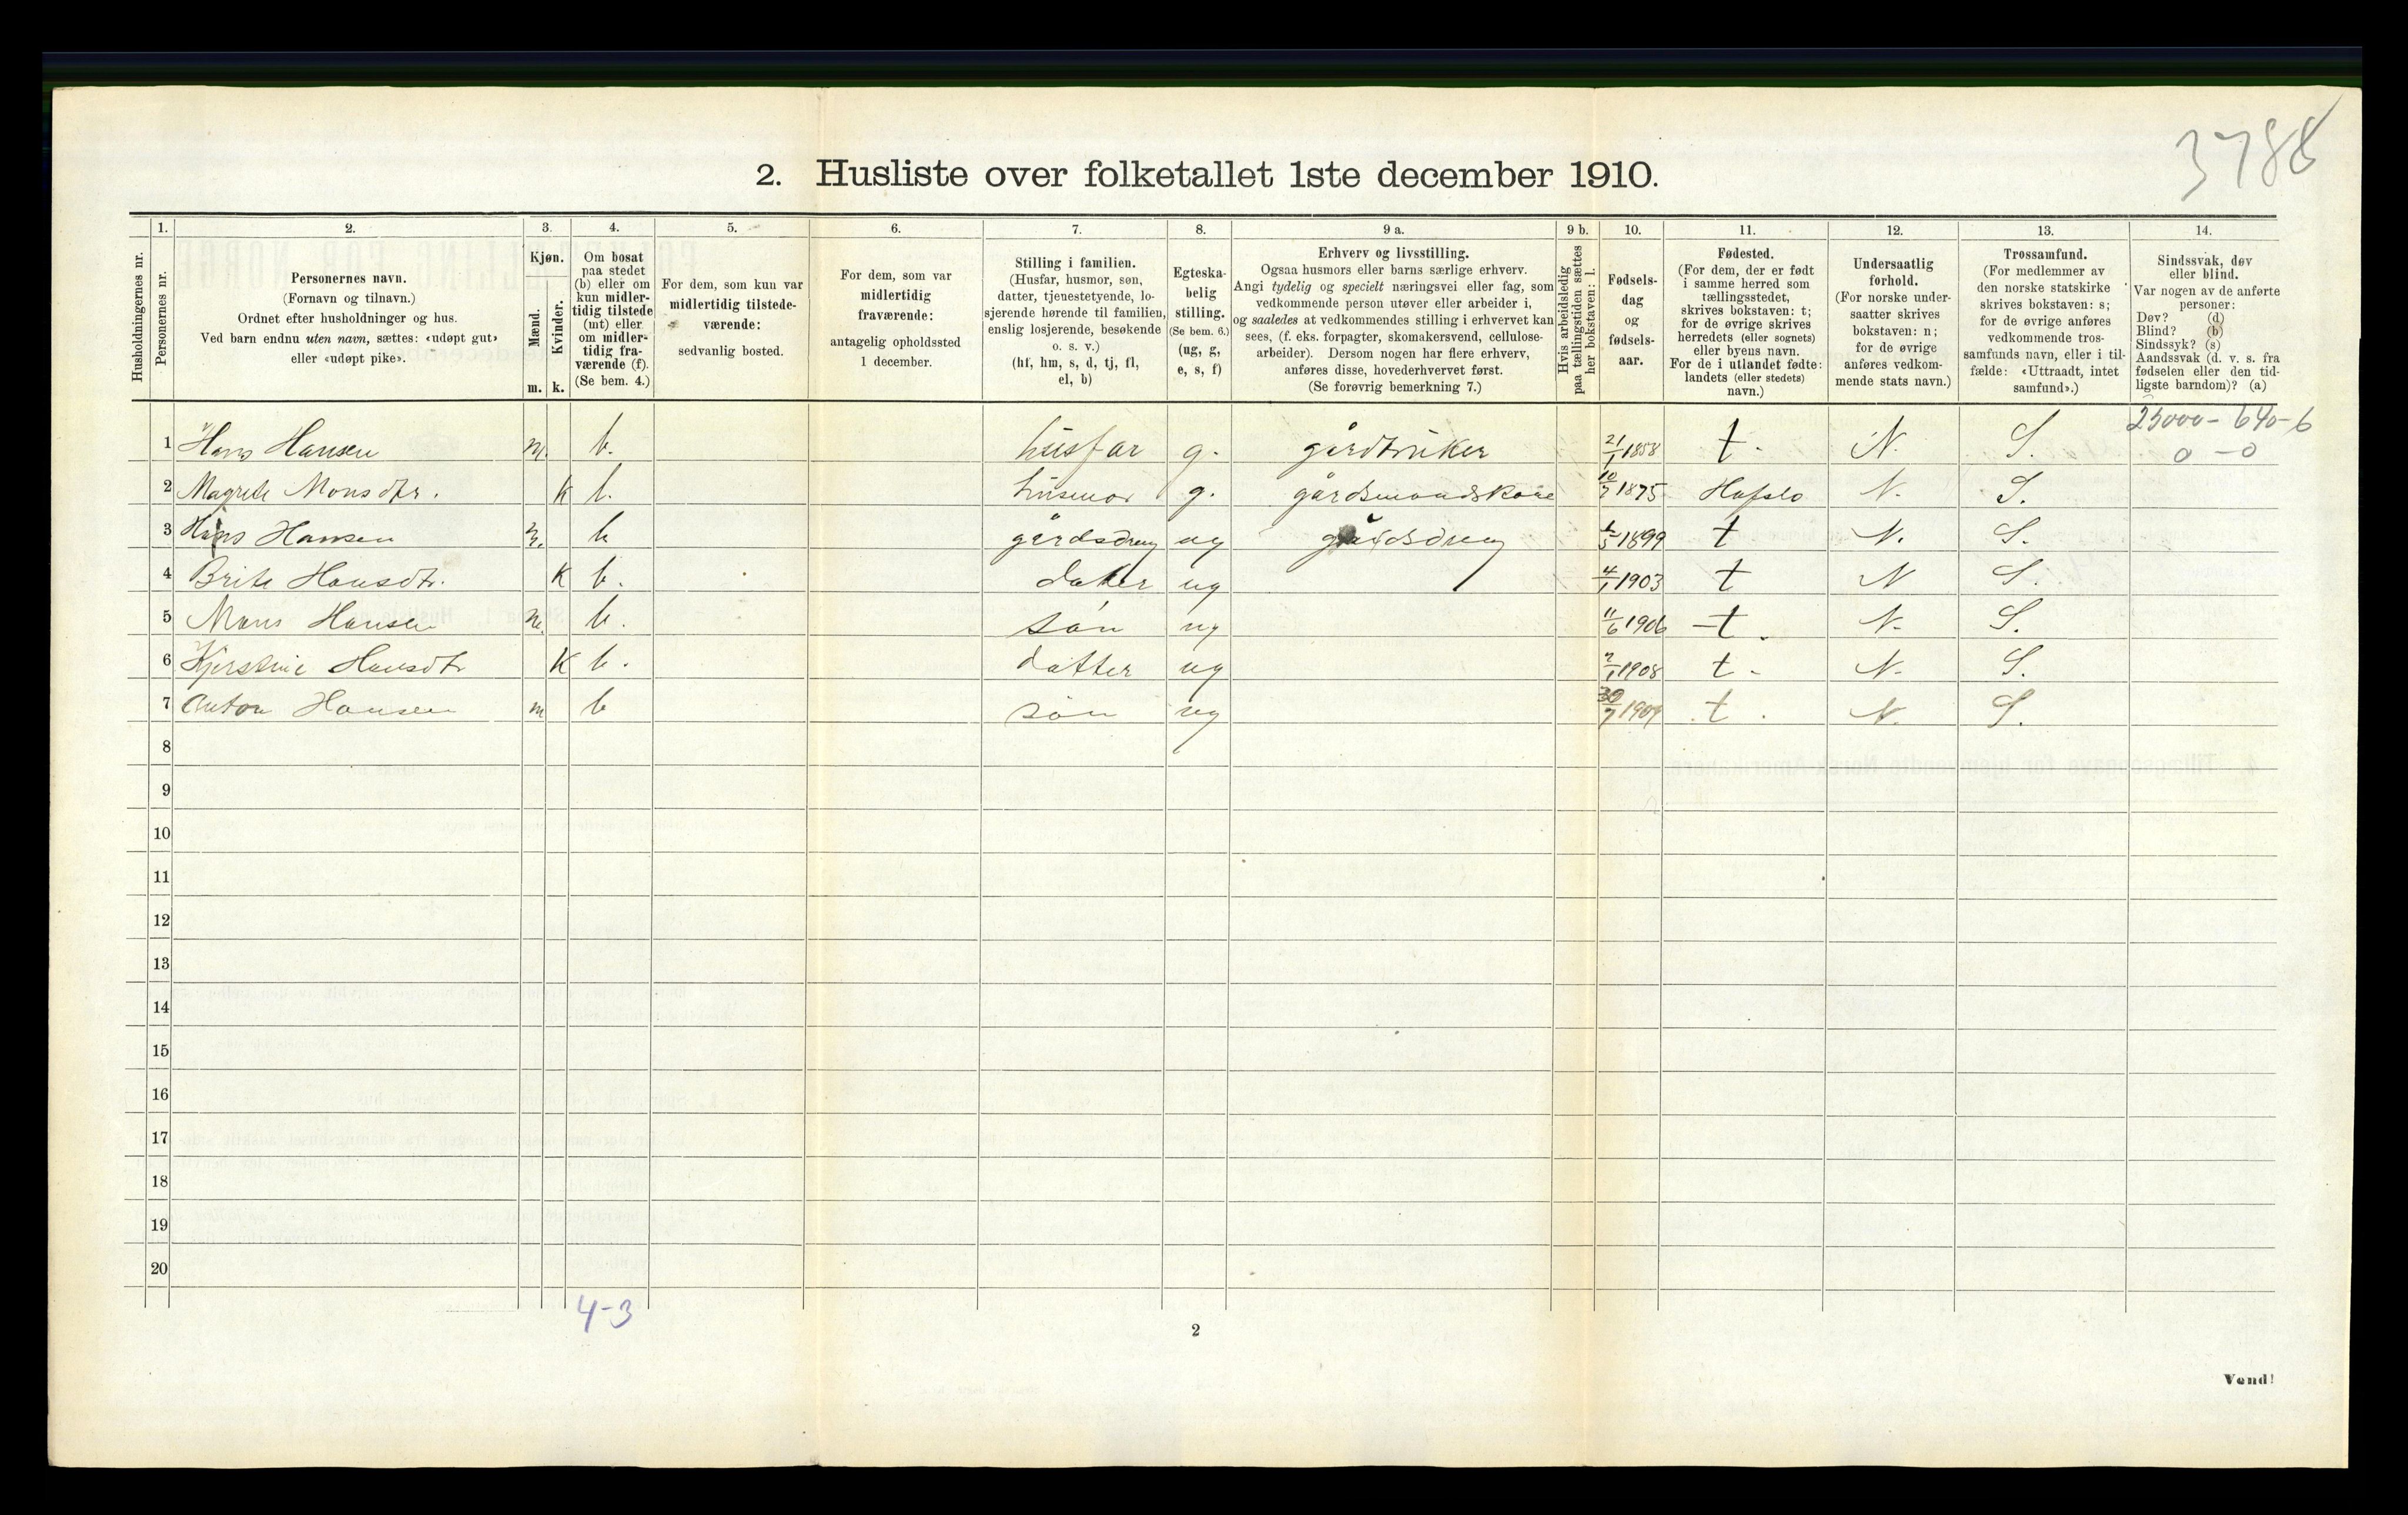 3788
2. Husliste over folketallet 1ste december 1910.
Husholdningernes nr.
1.
Personernes nr.
2.
Personernes navn.
(Fornavn og tilnavn.)
Ordnet efter husholdninger og hus.
Ved barn endnu uten navn, sættes: «udøpt gut»
eller «udøpt pike».
3.
Kjøn.
Mænd.
Kvinder.
m. k.
4.
Om bosat
paa stedet
(b) eller om
kun midler-
tidig tilstede
(mt) eller
om midler-
tidig fra-
værende (f).
(Se bem. 4.)
5.
For dem, som kun var
midlertidig tilstede-
værende:
sedvanlig bosted.
6.
For dem, som var
midlertidig
fraværende:
antagelig opholdssted
1 december.
7.
Stilling i familien.
(Husfar, husmor, søn,
datter, tjenestetyende, lo-
sjerende hørende til familien,
enslig losjerende, besøkende
o. s. v.)
(hf, hm, s, d, tj, fl,
el, b)
8.
Egteska-
belig
stilling.
(Se bem. 6.)
(ug, g,
e, s, f)
9 a.
Erhverv og livsstilling.
Ogsaa husmors eller barns særlige erhverv.
Angi tydelig og specielt næringsvei eller fag, som
vedkommende person utøver eller arbeider i,
og saaledes at vedkommendes stilling i erhvervet kan
sees, (f. eks. forpagter, skomakersvend, cellulose-
arbeider). Dersom nogen har flere erhverv,
anføres disse, hovederhvervet først.
(Se forøvrig bemerkning 7.)
9 b.
Hvis arbeidsledig
paa tællingstiden sættes
her bokstaven: l.
10.
Fødsels-
dag
og
fødsels-
aar.
11.
Fødested.
(For dem, der er født
i samme herred som
tællingsstedet,
skrives bokstaven: t;
for de øvrige skrives
herredets (eller sognets)
eller byens navn.
For de i utlandet fødte:
landets (eller stedets)
navn.)
12.
Undersaatlig
forhold.
(For norske under-
saatter skrives
bokstaven: n;
for de øvrige
anføres vedkom-
mende stats navn.)
13.
Trossamfund.
(For medlemmer av
den norske statskirke
skrives bokstaven: s;
for de øvrige anføres
vedkommende tros-
samfunds navn, eller i til-
fælde: «Uttraadt, intet
samfund».)
14.
Sindssvak, døv
eller blind.
Var nogen av de anførte
personer:
Døv? (d)
Blind? (b)
Sindssyk? (s)
Aandssvak (d. v. s. fra
fødselen eller den tid-
ligste barndom)? (a)
25000 - 640 - 6
0 - 0
1 Hans Hansen m. b. husfar g. gårdbruker 21/1 1858 t. N. S.
2 Magrete Monsdtr. k b. husmor g. gårdsmandskone 10/7 1875 Hafslo N. S.
3 Hans Hansen m. b gårdsdreng ug gårdsdreng 1899 t N. S.
4 Brita Hansdtr. k b. datter ug 4/1 1903 t N S.
5 Mons Hansen m. b. søn ug 11/6 1906 t. N. S.
6 Kjerstine Hansdtr k b. datter ug 1908 t. N. S.
7 Anton Hansen m b søn ug 30/7 1909 t. N. S.
8
9
10
11
12
13
14
15
16
17
18
19
20
4-3
2
Vend!